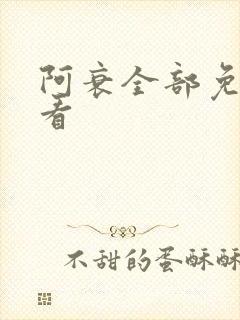 阿衰全部免
看
不甜的蛋酥酥